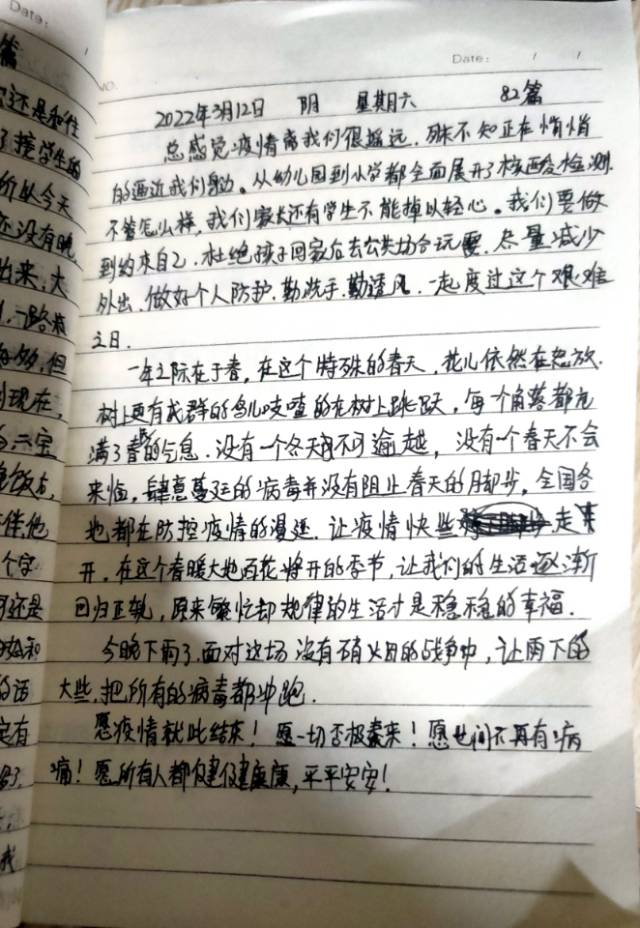 Date:
Date: / /
NO.
2022年3月12日 阴 星期六 82篇
总感觉疫情离我们很遥远,殊不知正在悄悄
的逼近我们身边。从幼儿园到小学都全面展开了核酸检测.
不管怎么样,我们家长还有学生不能掉以轻心。我们要做
到约束自己.杜绝孩子回家后去公共场合玩耍.尽量减少
外出.做好个人防护.勤洗手.勤透风.一起度过这个艰难
之日.
一年之际在于春,在这个特殊的春天,花儿依然在怒放.
树上更有成群的鸟儿吱喳的在树上跳跃,每个角落都充
满了春的气息.没有一个冬天不可逾越,没有一个春天不会
来临,肆意蔓延的病毒并没有阻止春天的脚步,全国各
地都在防控疫情的漫延.让疫情快些走
开.在这个春暖大地百花将开的季节,让我们的生活逐渐
回归正轨,原来繁忙却规律的生活才是稳稳的幸福.
今晚下雨了.面对这场没有硝火的战争中,让雨下的
大些.把所有的病毒都冲跑.
愿疫情就此结束!愿一切否极泰来!愿世间不再有病
痛!愿所有人都健健康康,平平安安!
篇
了接学生的
所以今天
还没有晚
出来,大
但
到现在,
二宝
伴,他
个字
还是
和
的话
定有
我